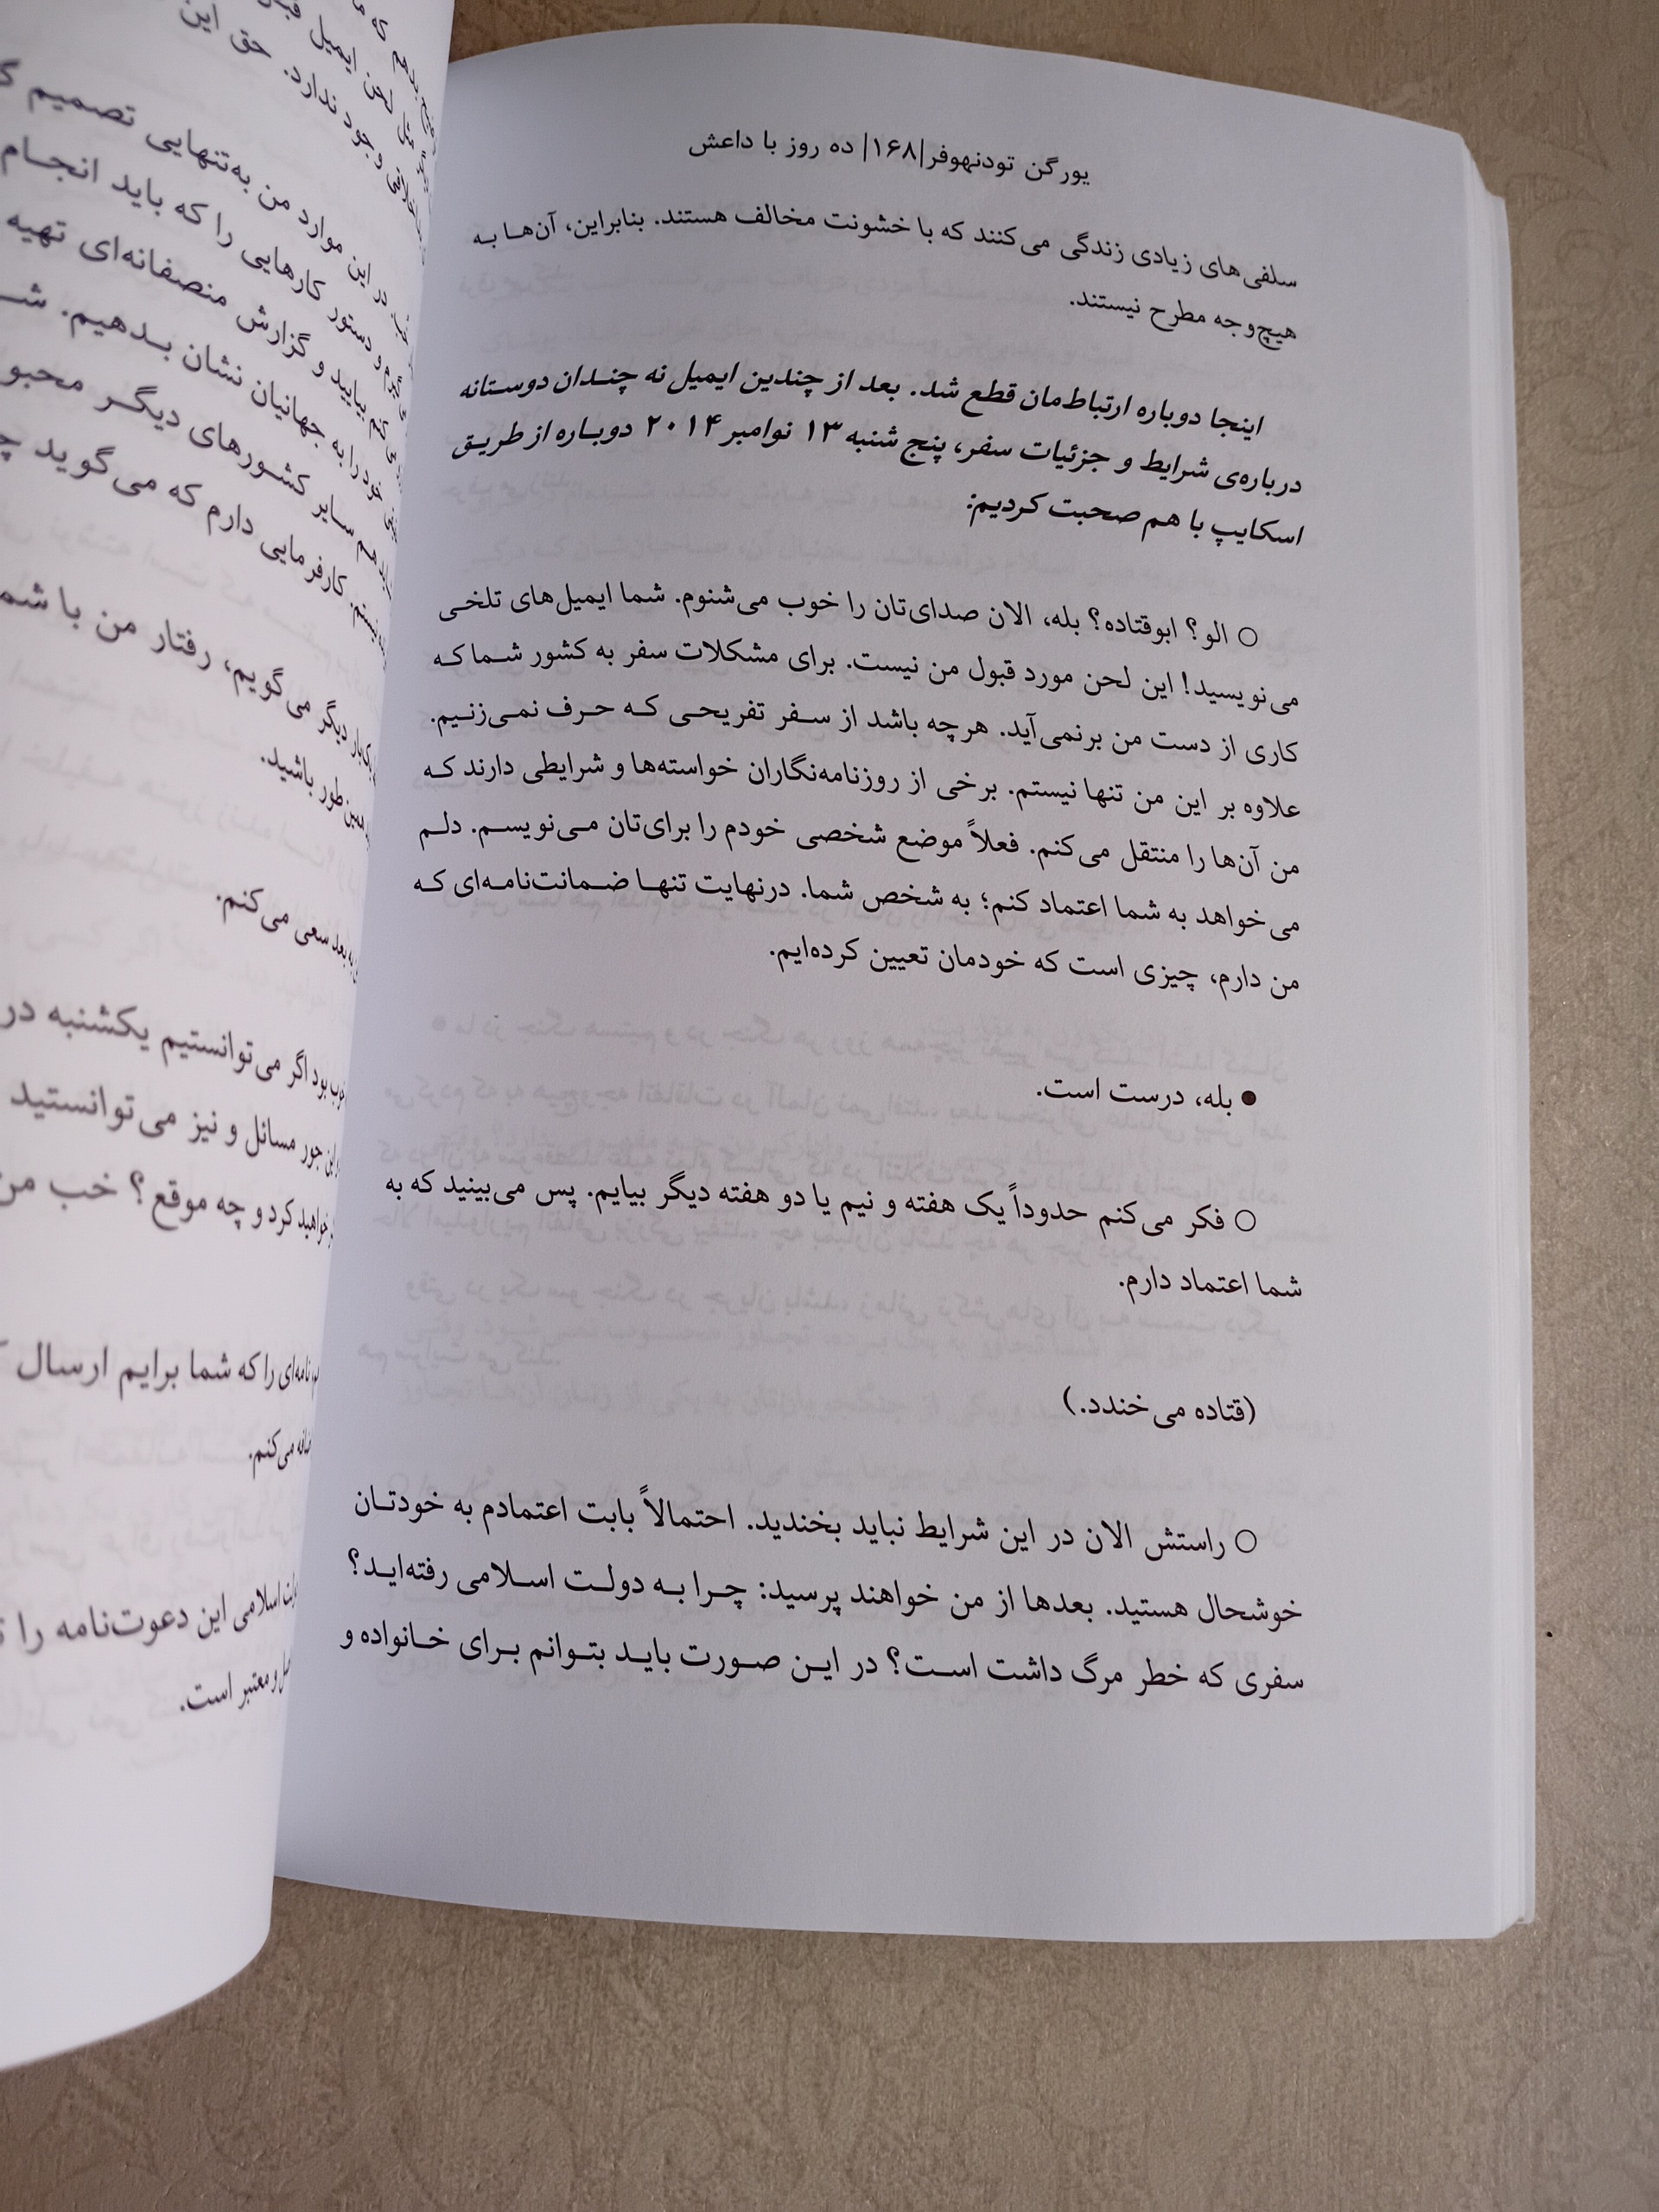 یورگن تودنهوفر|۱۶۸| ده روز با داعش
سلفی‌های زیادی زندگی می‌کنند که با خشونت مخالف هستند. بنابراین، آن‌هـا بـه
هیچ‌وجه مطرح نیستند.
اینجا دوباره ارتباط‌مان قطع شد. بعد از چندین ایمیل نه چنـدان دوسـتانه
درباره‌ی شرایط و جزئیات سفر، پنج شنبه ۱۳ نوامبر ۲۰۱۴ دوبـاره از طریـق
اسکایپ با هم صحبت کردیم:
○ الو؟ ابوقتاده؟ بله، الان صدای‌تان را خوب می‌شنوم. شما ایمیل‌های تلخـی
می‌نویسید! این لحن مورد قبول من نیست. برای مشکلات سفر به کشور شـما کـه
کاری از دست من برنمی‌آید. هرچه باشد از سـفر تفریحـی کـه حـرف نمـی‌زنـیم.
علاوه بر این من تنها نیستم. برخی از روزنامه‌نگاران خواسته‌ها و شرایطی دارند کـه
من آن‌ها را منتقل می‌کنم. فعلاً موضع شخصی خودم را برای‌تان مـی‌نویسـم. دلـم
می‌خواهد به شما اعتماد کنم؛ به شخص شما. درنهایت تنهـا ضـمانت‌نامـه‌ای کـه
من دارم، چیزی است که خودمان تعیین کرده‌ایم.
● بله، درست است.
○ فکر می‌کنم حدوداً یک هفته و نیم یا دو هفته دیگر بیایم. پس می‌بینید که به
شما اعتماد دارم.
(قتاده می‌خندد.)
○ راستش الان در این شرایط نباید بخندید. احتمالاً بابت اعتمادم به خودتـان
خوشحال هستید. بعدها از من خواهند پرسید: چـرا بـه دولـت اسـلامی رفته‌ایـد؟
سفری که خطر مرگ داشت اسـت؟ در ایـن صـورت بایـد بتـوانم بـرای خـانواده و
حق این
وجود ندارد.
این موارد من به‌تنهایی تصمیم
و دستور کارهایی را که باید انجـام
بیایید و گزارش منصفانه‌ای تهیه
خود را به جهانیان نشان بـدهیم.
سـایر کشـورهای دیگـر
کارفرمایی دارم که می‌گوید
دیگر می‌گویم، رفتار من با
طور باشید.
بعد سعی می‌کنم.
خوب بود اگر می‌توانستیم یکشنبه در
جور مسائل و نیز می‌توانستید
خواهید کرد و چه موقع؟ خب من
نامه‌ای را که شما برایم ارسال
می‌کنم.
اسلامی این دعوت‌نامه را
و معتبر است.